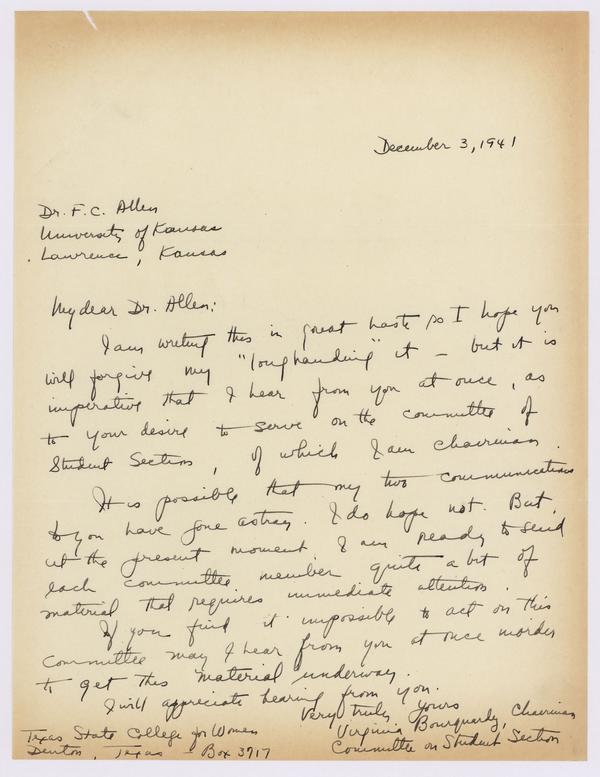 December 3, 1941
Dr. F. C. Allen
University of Kansas
Lawrence, Kansas
My dear Dr. Allen:
I am writing this in great haste so I hope you
will forgive my "longhanding" it – but it is
imperative that I hear from you at once, as
to your desire to serve on the committee of
Student Section, of which I am chairman.
It is possible that my two communications
to you have gone astray. I do hope not. But,
at the present moment I am ready to send
each committee member quite a bit of
material that requires immediate attention.
If you find it impossible to act on this
committee may I hear from you at once in order
to get this material underway.
I will appreciate hearing from you.
Very truly yours
Virginia Bourquardez, Chairman
Committee on Student Section
Texas State College for Women
Denton, Texas – Box 3717